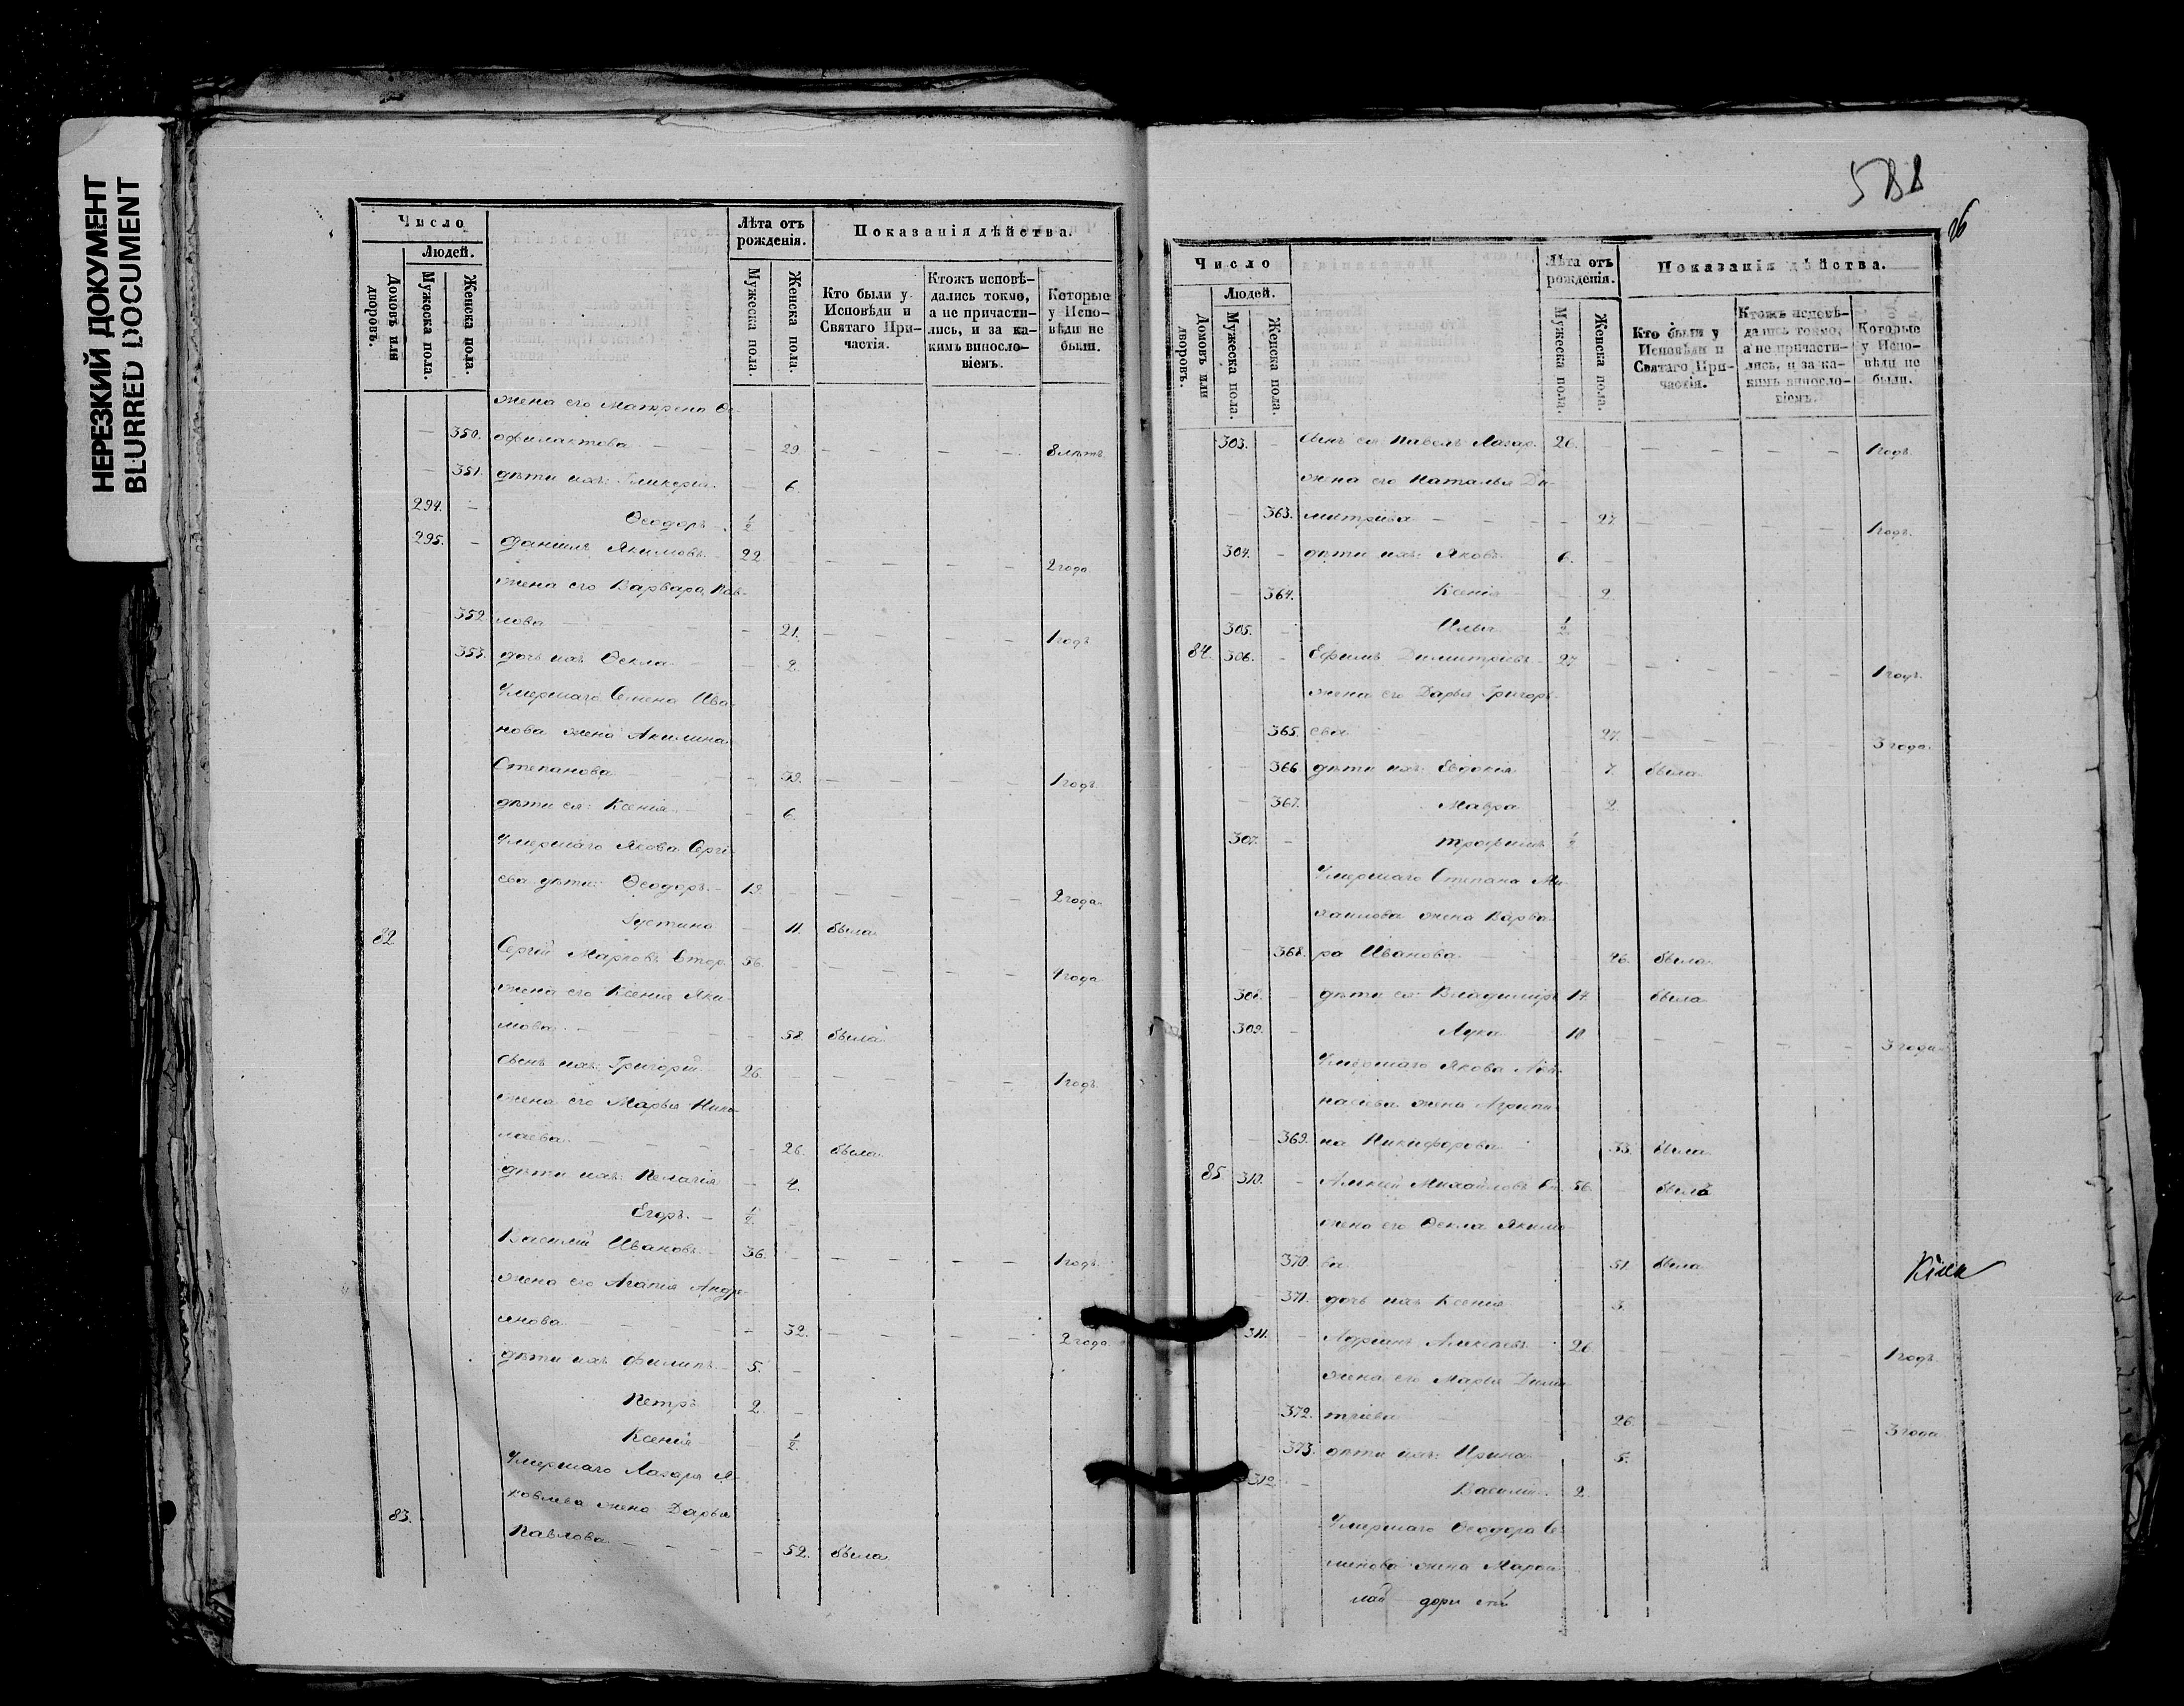 НЕРЕЗКИЙ ДОКУМЕНТ
BLURRED DOCUMENT
Число
Людей.
Домовъ или дворовъ.
Мужеска пола.
Женска пола.
Лѣта отъ рожденія.
Мужеска пола.
Женска пола.
Показанія дѣйства.
Кто были у Исповѣди и Святаго Причастія.
Ктожъ исповѣдались токмо, а не причастились, и за какимъ винословіемъ.
Которые у Исповѣди не были.
жена его Матрена Ѳе-
350. офилактова - - 29 - - - - 8 лѣтъ
- 351. дѣти ихъ: Гликерія - 6.
294. - Ѳеодоръ - 1/2 -
295. - Даніилъ Якимовъ - 22 - - - - - 2 года
жена его Варвара Пав-
352 лова - - - - 21. - - - - 1 годъ
353. дочь ихъ Ѳекла - - 2.
Умершаго Семена Ива-
нова жена Акилина
Степанова - 59. - - - - 1 годъ
дѣти ея: Ксенія - - 6.
Умершаго Якова Сергі-
ева дѣти: Ѳеодоръ - 19. - - - - 2 года
Іустина - 11. была
82 Сергій Марковъ Втор. 56. - - - - - 4 года
жена его Ксенія Яки-
мова - - - - 58. была
сынъ ихъ: Григорій - 26. - - - - - 1 годъ
жена его Марья Нико-
лаева - - - - 26. была
дѣти ихъ: Пелагія - 4.
Егоръ. - 1/2. -
Василій Ивановъ - 36. - - - - - 1 годъ
жена его Агапія Андре-
янова - - - - 32. - - - - 2 года
дѣти ихъ Филипъ - 5. -
Петръ 2. -
Ксенія - 1/2.
Умершаго Лазаря Я-
83. ковлева жена Дарья
Павлова - - - - 52. была
588
26
Число
Людей.
Домовъ или дворовъ.
Мужеска пола.
Женска пола.
Лѣта отъ рожденія.
Мужеска пола.
Женска пола.
Показанія дѣйства.
Кто были у Исповѣди и Святаго Причастія.
Ктожъ исповѣдались токмо, а не причастились, и за какимъ винословіемъ.
Которые у Исповѣди не были.
303. - сынъ ея Павелъ Лазар. 26. - - - - - 1 годъ
жена его Наталья Ди-
- 363. митріева - - - - 27. - - - - 1 годъ
304. - дѣти ихъ: Яковъ 6. -
- 364. Ксенія - - 2.
305. - Илья 1/2 -
84. 306. - Ефимъ Димитріевъ - 27 - - - - - 1 годъ
жена его Дарья Григорь-
365. ева - - 27. - - - - 3 года
366. дѣти ихъ Евдокія - 7. была
- 367. Мавра - 2
307. - Трофимъ
Умершаго Степана Ми-
хаилова жена Варва-
- 368. ра Иванова - - 46. была
308. - дѣти ея: Владиміръ 14. - была
309. - Лука - 10. - - - - - 3 года
Умершаго Якова Аѳа-
насіева жена Агрипи-
- 369. на Никифорова - 53. была
85 310. - Алексѣй Михайловъ 56. - былъ
жена его Ѳекла Якимо-
370. ва - 51. была
- 371. дочь ихъ Ксенія - 3.
311. - Адріанъ Алексѣевъ - 26. - - - - - 1 годъ
жена его Марья Дими-
372. тріева - - 26. - - - - 3 года
373. дѣти ихъ: Ирина - 5.
312. - Василій. - 2.
Умершаго Ѳеодора Се-
менова жена Марѳа